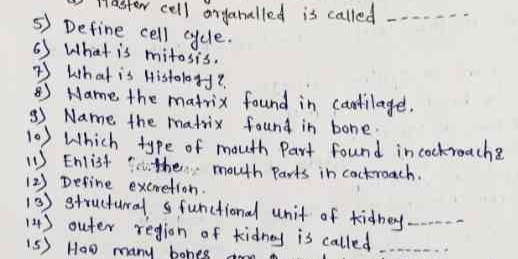 Master cell organalled is called -------
5) Define cell cycle.
6) What is mitosis.
7) What is Histology?
8) Name the matrix found in cartilage.
9) Name the matrix found in bone.
10) Which type of mouth Part found in cockroach?
11) Enlist the mouth Parts in cockroach.
12) Define excretion.
13) Structural & functional unit of kidney------
14) outer region of kidney is called --------
15) How many bones are